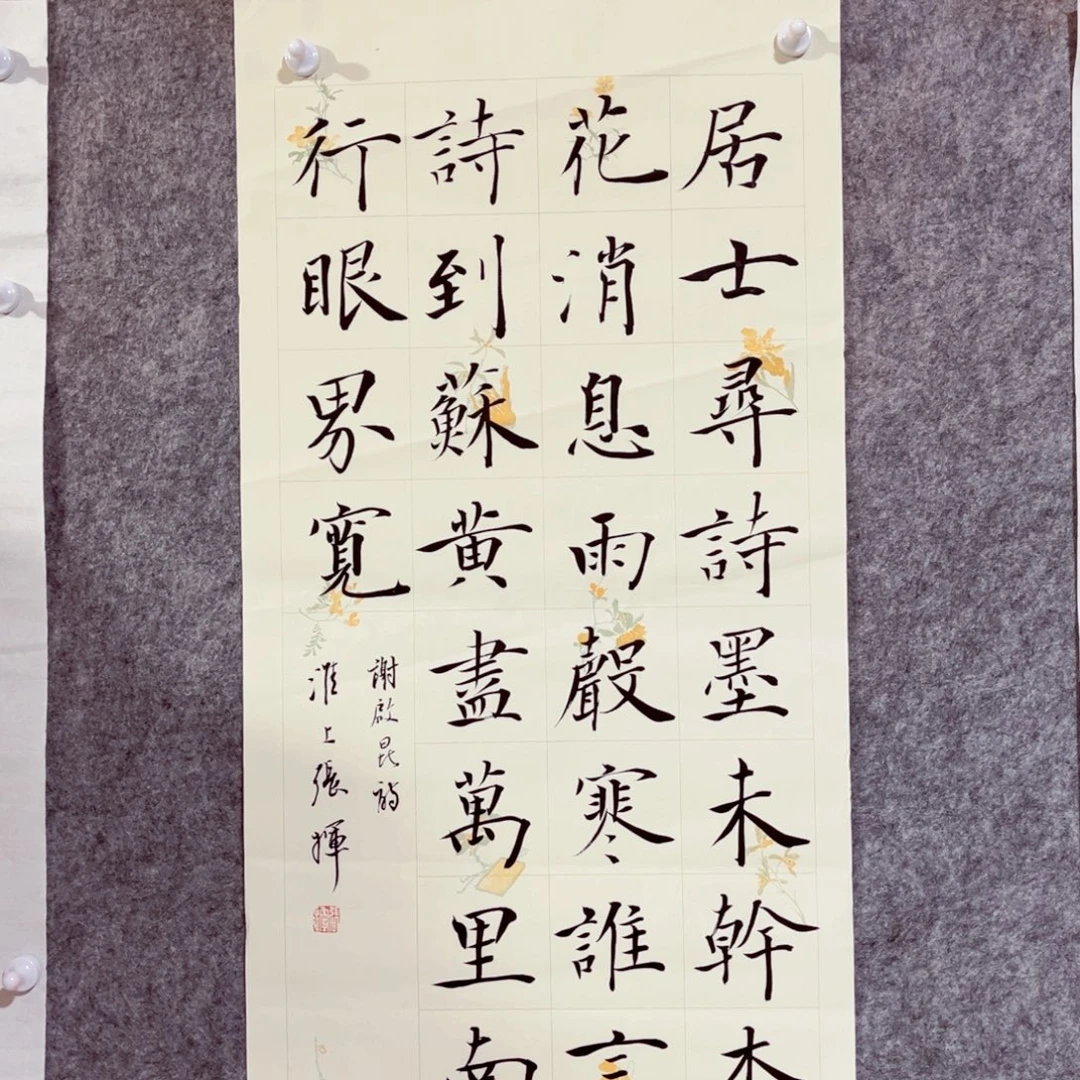 居士尋詩墨未幹杏
花消息雨聲寒誰言
詩到蘇黃盡萬里南
行眼界寬
謝啟昆詩
淮上張揮